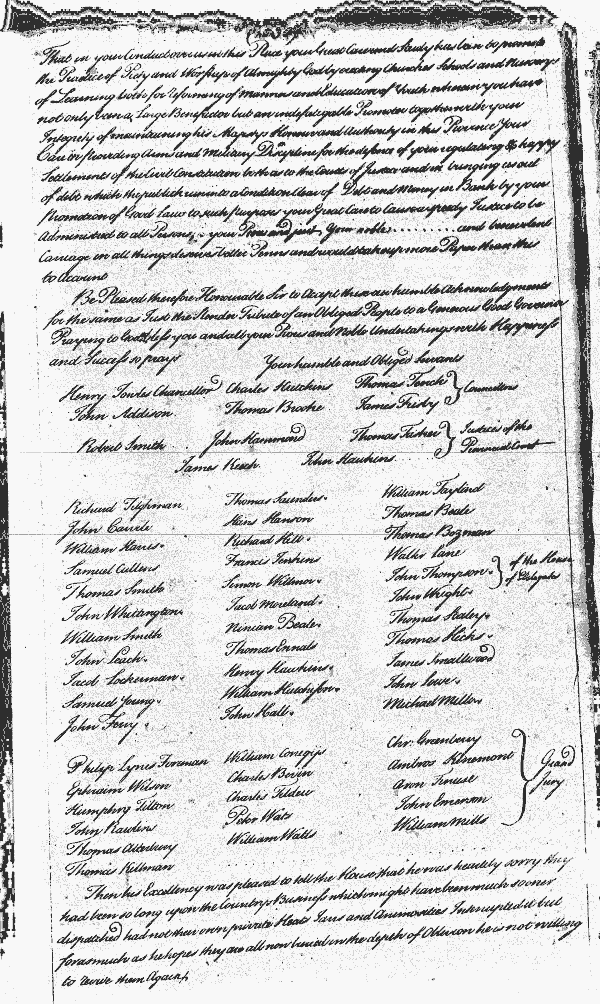 That in your Conduct over us in this Place your Great Care and Study has been to promote
the Practice of Piety and Worship of Almighty God by erecting Churches Schools and Nurserys
of Learning both for reforming of Manners and Education of Youth wherein you have
not only been a Large Benefactor but an indefatigable Promoter together with your
Integrity of maintaining his Majestys Honour and Authority in this Province Your
Care in providing Arms and Military Discipline for the defence of your regulating & happy
Settlement of the Civil Constitution both as to the Courts of Justice and in bringing us out
of debt which the publick run in to a Condition clear of Debt and Money in Bank by your
Promotion of Good Laws to such purposes your Great Care to cause speedy Justice to be
Administred to all Persons, your Pious and just Your noble ......... and benevolent
Carriage in all things deserve better Penns and would take up more Paper than this
to account
Be Pleased therefore Honourable Sir to Accept these our humble Acknowledgments
for the same as Just the Slender Tribute of an Obliged People to a Generous Good Governor
Praying to God bless you and all your Pious and Noble Undertakings with Happyness
and Success so prays Your humble and Obliged Servants
Henry Jowles Chancellor Charles Hutchins Thomas Tench } Councellors
John Addison. Thomas Brooke James Frisby
Robert Smith John Hammond Thomas Tasker } Justices of the
James Keech John Hawkins. Provincial Court
Richard Tilghman Thomas Saunders. William Taylard
John Carvile Hans Hanson Thomas Beale
William Harris. Richard Hill. Thomas Bozman
Samuel Cullens Francis Jenkins Walter Lane
Thomas Smith Simon Willmor. John Thompson. } of the House
John Whittington. Jacob Moreland. John Wright. of Delegates
William Smith Ninian Beale. Thomas Staley.
John Leach. Thomas Ennals Thomas Hicks.
Jacob Lockerman. Henry Hawkins. James Smallwood
Samuel Young. William Hutchison. John Lowe.
John Ferry. John Hall. Michael Miller.
Philip Lynes Foreman William Conegys Chr. Granberry
Ephraim Wilson Charles Boven Ambros Kinemont } Grand
Humphry Tilton Charles Tilden Aron Jury
John Rawlens Peter Wats John Emerson
Thomas Atterbury William Watts William Mills
Thomas Kellman
Then his Excellency was pleased to tell the House that he was heartily sorry they
had been so long upon the Country Business which might have been much sooner
dispatched had not their own private Heats Jarrs and Animosities Interrupted it but
forasmuch as he hopes they are all now buried in the depth of Oblivion he is not willing
to revive them Again,